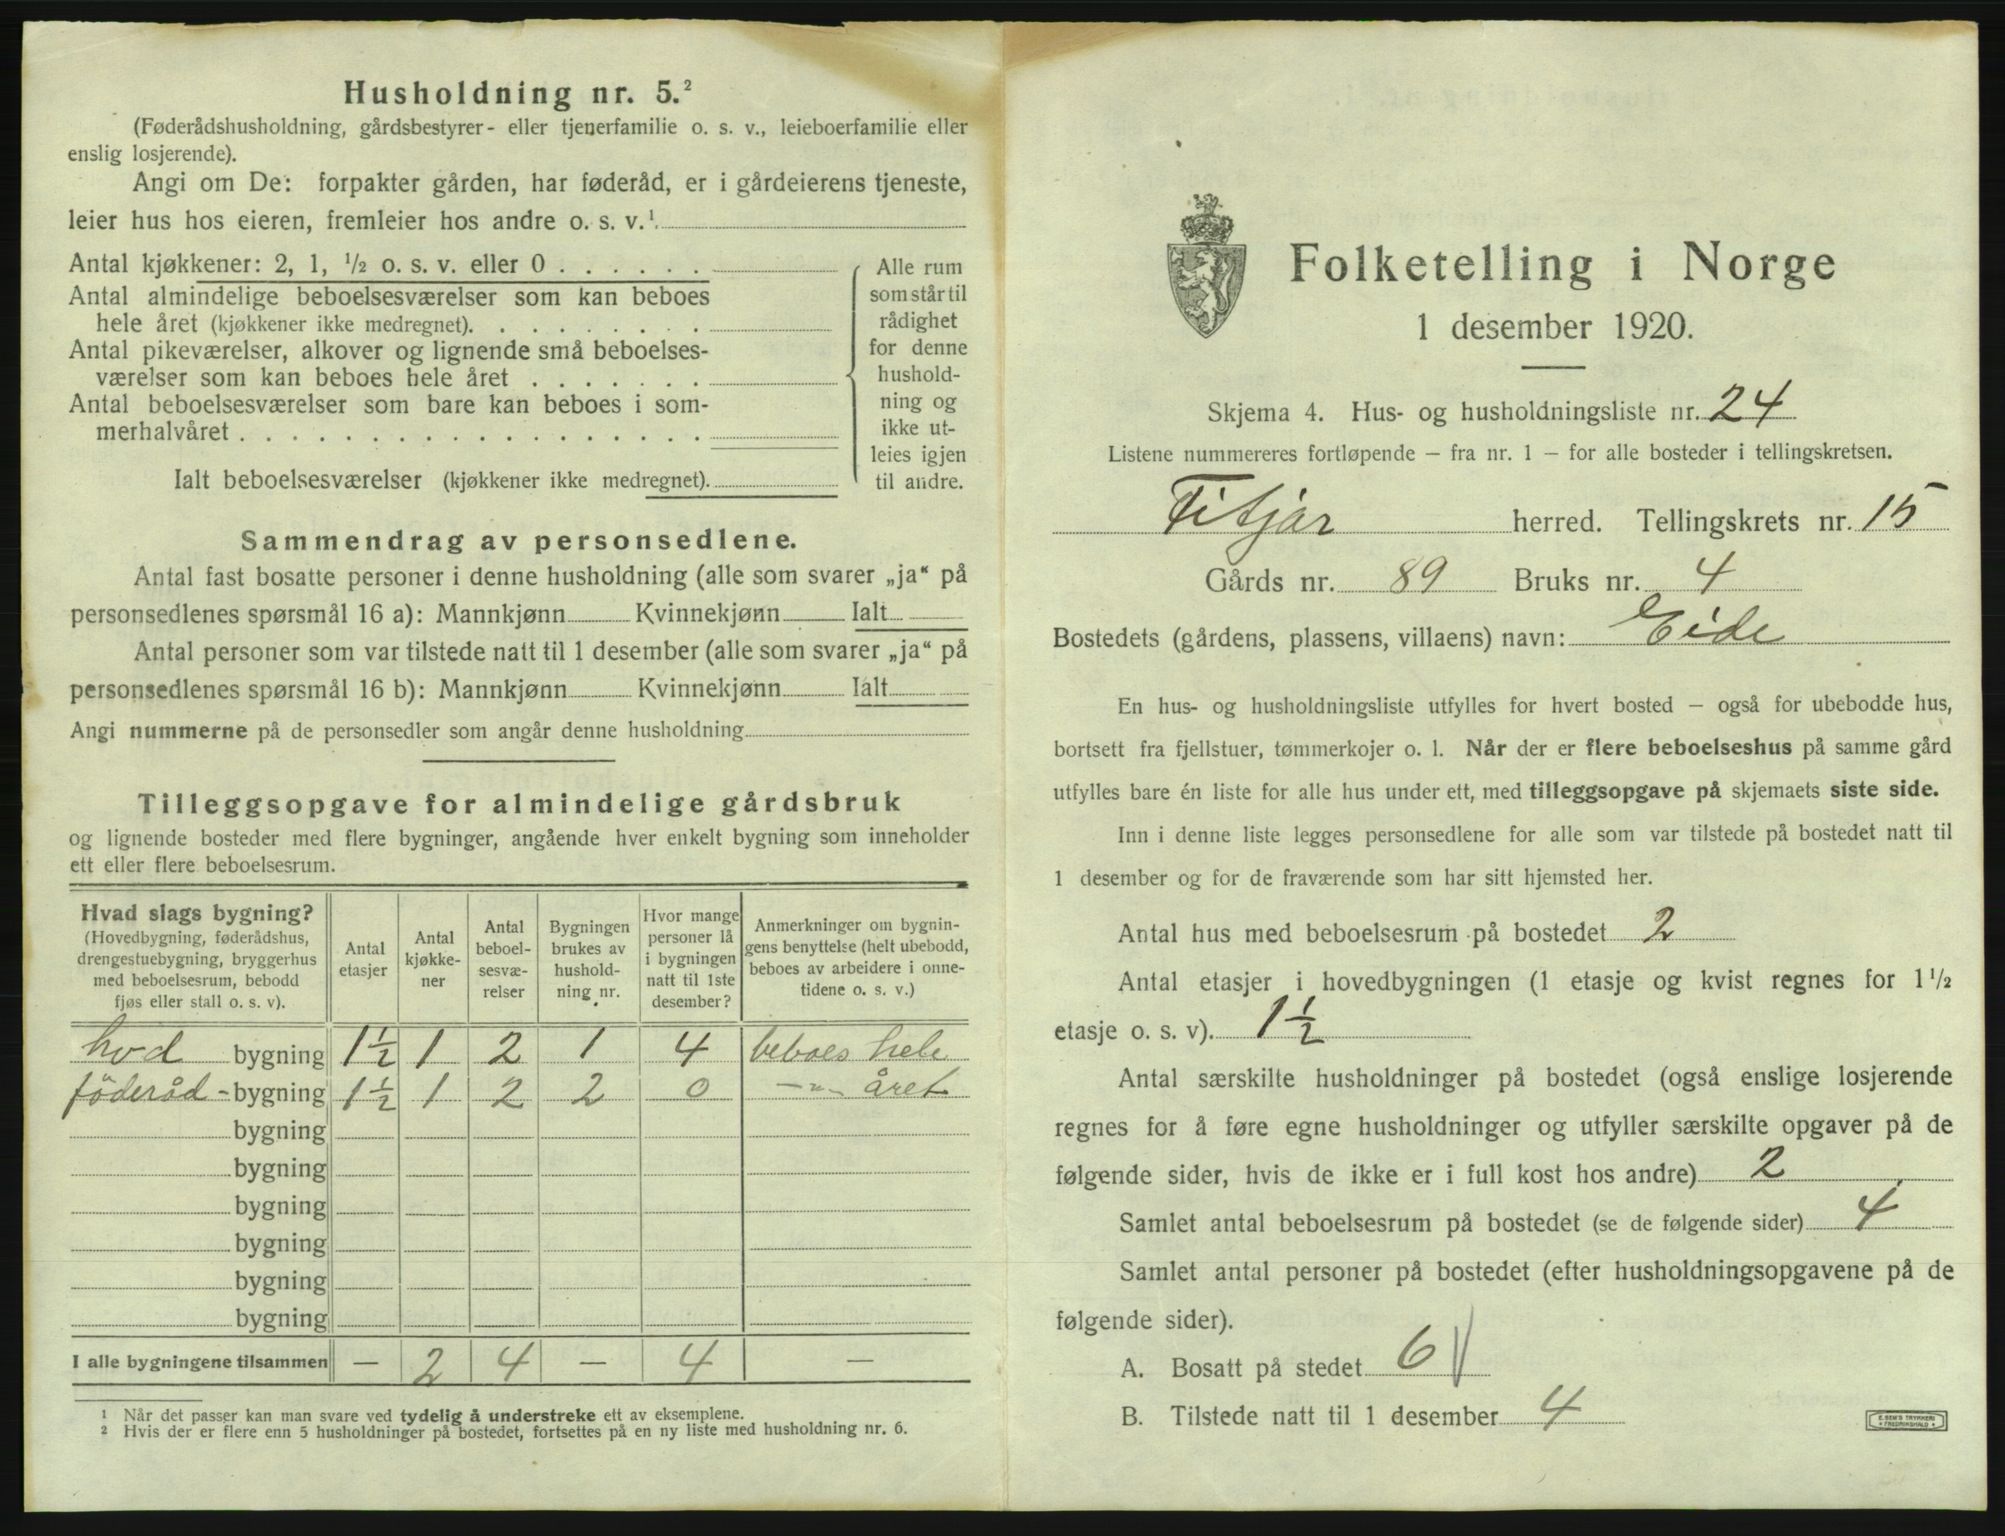 Husholdning nr. 5.²
(Føderådshusholdning, gårdsbestyrer- eller tjenerfamilie o. s. v., leieboerfamilie eller
enslig losjerende).
Angi om De: forpakter gården, har føderåd, er i gårdeierens tjeneste,
leier hus hos eieren, fremleier hos andre o. s. v.¹
Antal kjøkkener: 2, 1, ½ o. s. v. eller 0 . . . . . .
Antal almindelige beboelsesværelser som kan beboes
hele året (kjøkkener ikke medregnet). . . . . . . . .
Antal pikeværelser, alkover og lignende små beboelses-
værelser som kan beboes hele året . . . . . . .
Antal beboelsesværelser som bare kan beboes i som-
merhalvåret . . . . . . . . . . . . . . . . . .
Alle rum
som står til
rådighet
for denne
hushold-
ning og
ikke ut-
leies igjen
til andre.
Ialt beboelsesværelser (kjøkkener ikke medregnet).
Sammendrag av personsedlene.
Antal fast bosatte personer i denne husholdning (alle som svarer „ja“ på
personsedlenes spørsmål 16 a): Mannkjønn Kvinnekjønn Ialt
Antal personer som var tilstede natt til 1 desember (alle som svarer „ja“ på
personsedlenes spørsmål 16 b): Mannkjønn Kvinnekjønn Ialt
Angi nummerne på de personsedler som angår denne husholdning
Tilleggsopgave for almindelige gårdsbruk
og lignende bosteder med flere bygninger, angående hver enkelt bygning som inneholder
ett eller flere beboelsesrum.
Hvad slags bygning?
(Hovedbygning, føderådshus,
drengestuebygning, bryggerhus
med beboelsesrum, bebodd
fjøs eller stall o. s. v).
Antal
etasjer
Antal
kjøkke-
ner
Antal
beboel-
sesvæ-
relser
Bygningen
brukes av
hushold-
ning nr.
Hvor mange
personer lå
i bygningen
natt til 1ste
desember?
Anmerkninger om bygnin-
gens benyttelse (helt ubebodd,
beboes av arbeidere i onne-
tidene o. s. v.)
hvd bygning 1½ 1 2 1 4 beboes hele
föderåd - bygning 1½ 1 2 2 0 —„— året
bygning
bygning
bygning
bygning
bygning
bygning
I alle bygningene tilsammen — 2 4 — 4 —
¹ Når det passer kan man svare ved tydelig å understreke ett av eksemplene.
² Hvis der er flere enn 5 husholdninger på bostedet, fortsettes på en ny liste med husholdning nr. 6.
Folketelling i Norge
1 desember 1920.
Skjema 4. Hus- og husholdningsliste nr. 24
Listene nummereres fortløpende — fra nr. 1 — for alle bosteder i tellingskretsen.
Fitjar herred. Tellingskrets nr. 15
Gårds nr. 89 Bruks nr. 4
Bostedets (gårdens, plassens, villaens) navn: Eide
En hus- og husholdningsliste utfylles for hvert bosted — også for ubebodde hus,
bortsett fra fjellstuer, tømmerkojer o. l. Når der er flere beboelseshus på samme gård
utfylles bare én liste for alle hus under ett, med tilleggsopgave på skjemaets siste side.
Inn i denne liste legges personsedlene for alle som var tilstede på bostedet natt til
1 desember og for de fraværende som har sitt hjemsted her.
Antal hus med beboelsesrum på bostedet 2
Antal etasjer i hovedbygningen (1 etasje og kvist regnes for 1½
etasje o. s. v). 1½
Antal særskilte husholdninger på bostedet (også enslige losjerende
regnes for å føre egne husholdninger og utfyller særskilte opgaver på de
følgende sider, hvis de ikke er i full kost hos andre) 2
Samlet antal beboelsesrum på bostedet (se de følgende sider) 4
Samlet antal personer på bostedet (efter husholdningsopgavene på de
følgende sider).
A. Bosatt på stedet 6
B. Tilstede natt til 1 desember 4
E. SEM'S TRYKKERI
FREDRIKSHALD